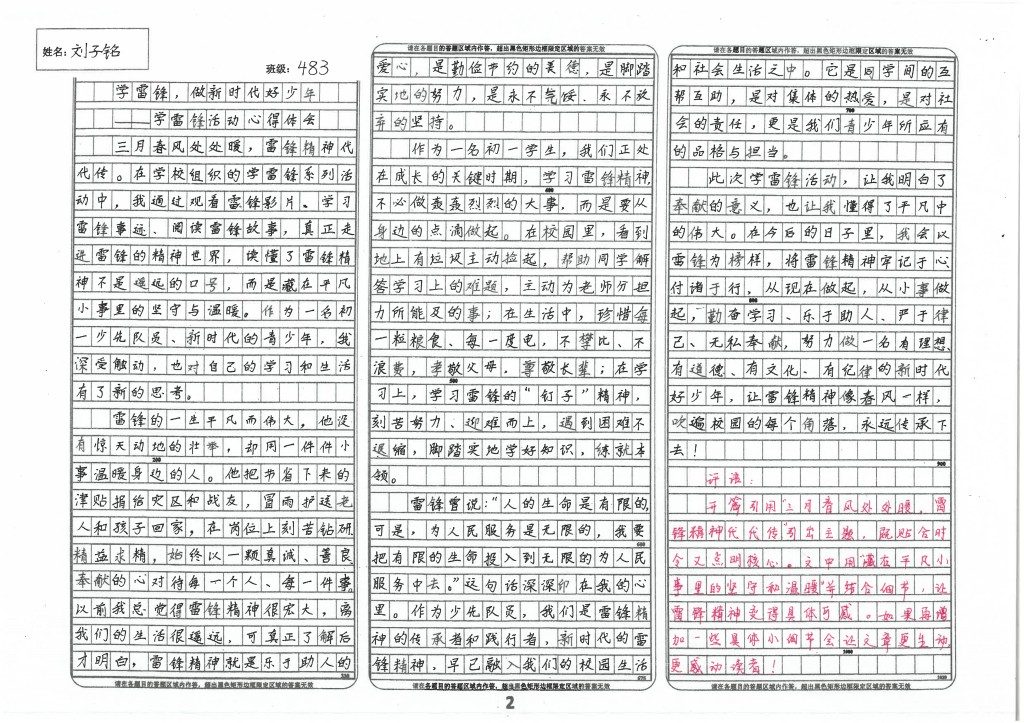 姓名：刘子铭
班级：483
学雷锋，做新时代好少年
——学雷锋活动心得体会
三月春风处处暖，雷锋精神代
代传。在学校组织的学雷锋系列活
动中，我通过观看雷锋影片、学习
雷锋事迹、阅读雷锋故事，真正走
进雷锋的精神世界，读懂了雷锋精
神不是遥远的口号，而是藏在平凡
小事里的坚守与温暖。作为一名初
一少先队员、新时代的青少年，我
深受触动，也对自己的学习和生活
有了新的思考。
雷锋的一生平凡而伟大，他没
有惊天动地的壮举，却用一件件小
200
事温暖身边的人。他把节省下来的
津贴捐给灾区和战友，冒雨护送老
人和孩子回家，在岗位上刻苦钻研
精益求精，始终以一颗真诚、善良
奉献的心对待每一个人、每一件事。
以前我总觉得雷锋精神很宏大，离
我们的生活很遥远，可真正了解后
才明白，雷锋精神就是乐于助人的
330
请在各题目的答题区域内作答，超出黑色矩形边框限定区域的答案无效
请在各题目的答题区域内作答，超出黑色矩形边框限定区域的答案无效
爱心，是勤俭节约的美德，是脚踏
实地的努力，是永不气馁、永不放
弃的坚持。
作为一名初一学生，我们正处
在成长的关键时期，学习雷锋精神，
400
不必做轰轰烈烈的大事，而是要从
身边的点滴做起。在校园里，看到
地上有垃圾主动捡起，帮助同学解
答学习上的难题，主动为老师分担
力所能及的事；在生活中，珍惜每
一粒粮食、每一度电，不攀比、不
浪费，孝敬父母，尊敬长辈；在学
500
习上，学习雷锋的“钉子”精神，
刻苦努力、迎难而上，遇到困难不
退缩，脚踏实地学好知识，练就本
领。
雷锋曾说：“人的生命是有限的，
可是，为人民服务是无限的，我要
600
把有限的生命投入到无限的为人民
服务中去。”这句话深深印在我的心
里。作为少先队员，我们是雷锋精
神的传承者和践行者，新时代的雷
锋精神，早已融入我们的校园生活
675
请在各题目的答题区域内作答，超出黑色矩形边框限定区域的答案无效
请在各题目的答题区域内作答，超出黑色矩形边框限定区域的答案无效
和社会生活之中。它是同学间的互
帮互助，是对集体的热爱，是对社
700
会的责任，更是我们青少年所应有
的品格与担当。
此次学雷锋活动，让我明白了
奉献的意义，也让我懂得了平凡中
的伟大。在今后的日子里，我会以
雷锋为榜样，将雷锋精神牢记于心、
付诸于行，从现在做起，从小事做
800
起，勤奋学习、乐于助人、严于律
己、无私奉献，努力做一名有理想、
有道德、有文化、有纪律的新时代
好少年，让雷锋精神像春风一样，
吹遍校园的每个角落，永远传承下
去！
900
评语：
开篇引用“三月春风处处暖，雷
锋精神代代传”引出主题，既贴合时
令又点明核心。文中用“藏在平凡小
事里的坚守和温暖”并结合细节，让
雷锋精神变得具体可感。如果再增
加一些具体小细节会让文章更生动
1000
更感动读者！
1020
请在各题目的答题区域内作答，超出黑色矩形边框限定区域的答案无效
2